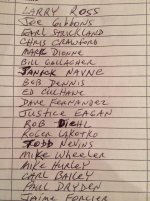 LARRY ROSS
JOE GIBBONS
EARL STRICKLAND
CHRIS CRAWFORD
MARK DIONNE
BILL GALLAGHER
JANICK NAYNE
BOB DENNIS
ED CULHANE
DAVE FERNANDEZ
JUSTICE EAGAN
ROB DIEHL
ROGER LAKOTKO
TODD NEVINS
MIKE WHEELER
MIKE HURLEY
CARL BAILEY
PAUL DRYDEN
JAIME FORGIER